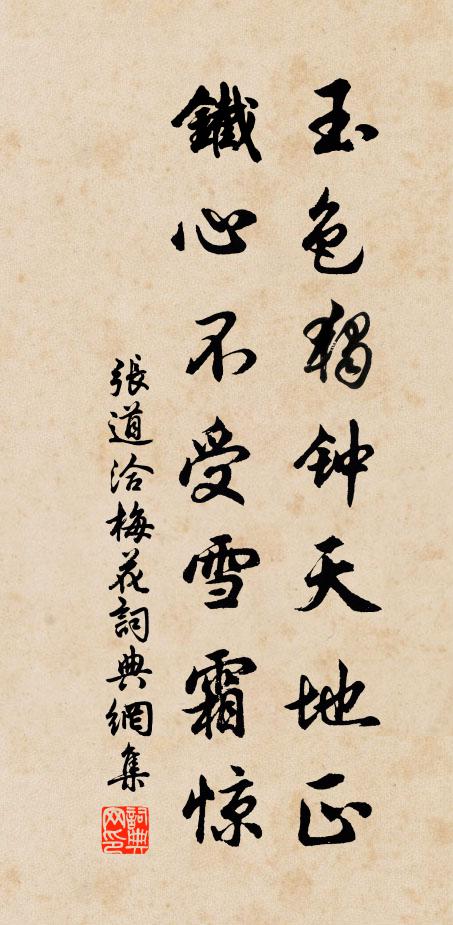 玉色獨钟天地正
鐵心不受雪霜惊
張道洽梅花詞典網集
詞典网印